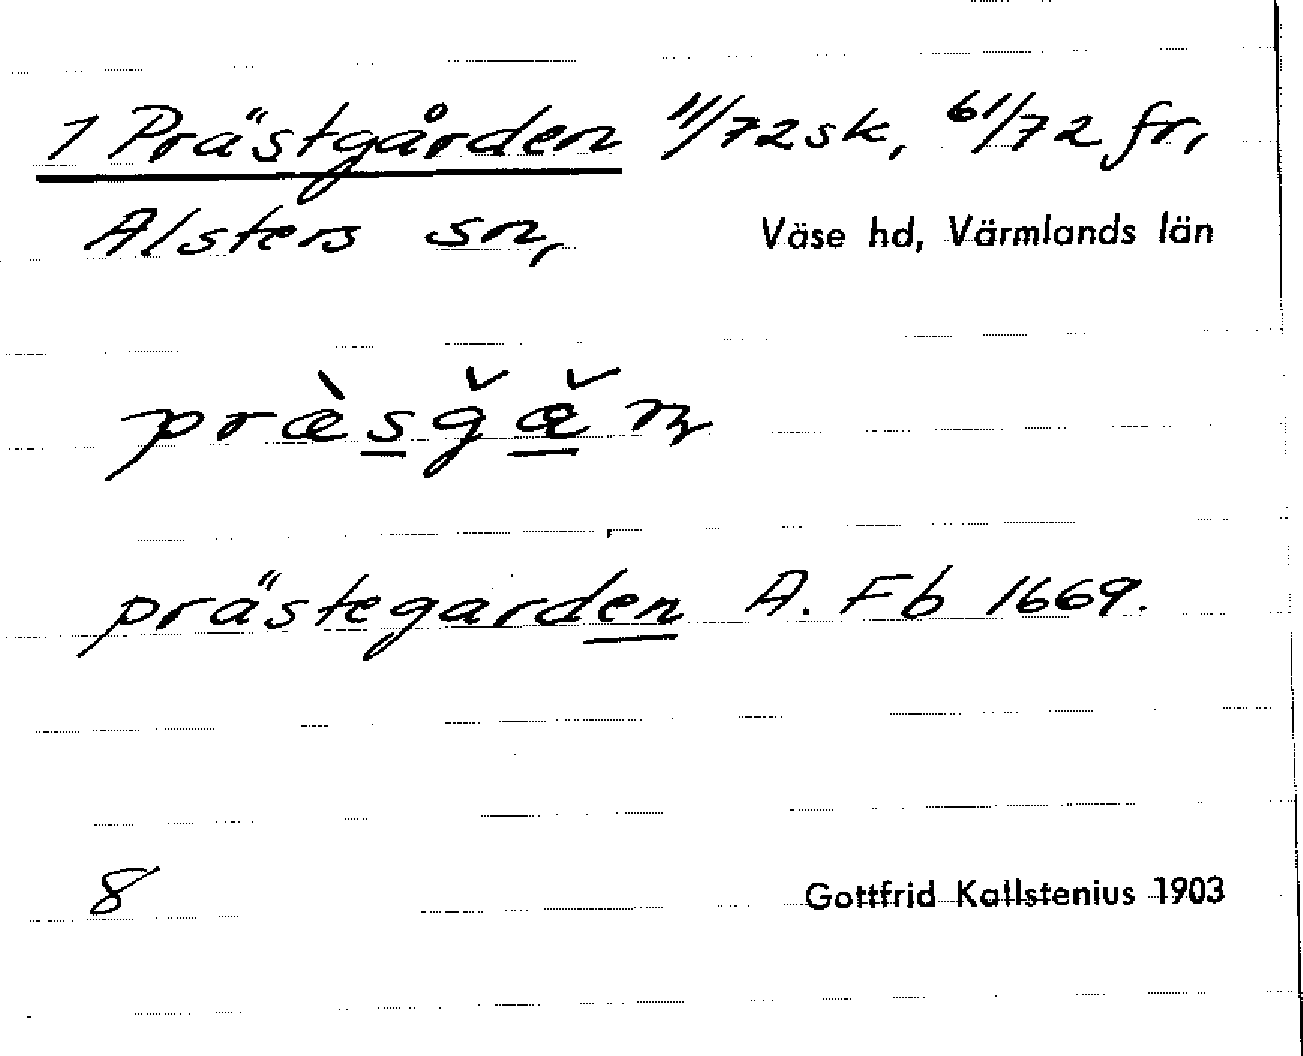 1 Prästgården 11/72 sk, 61/72 fr,
Alsters sn, Väse hd, Värmlands län
præ̀sǧæ̌ɳ
prästegarden A. Fb 1669.
8 Gottfrid Kallstenius 1903